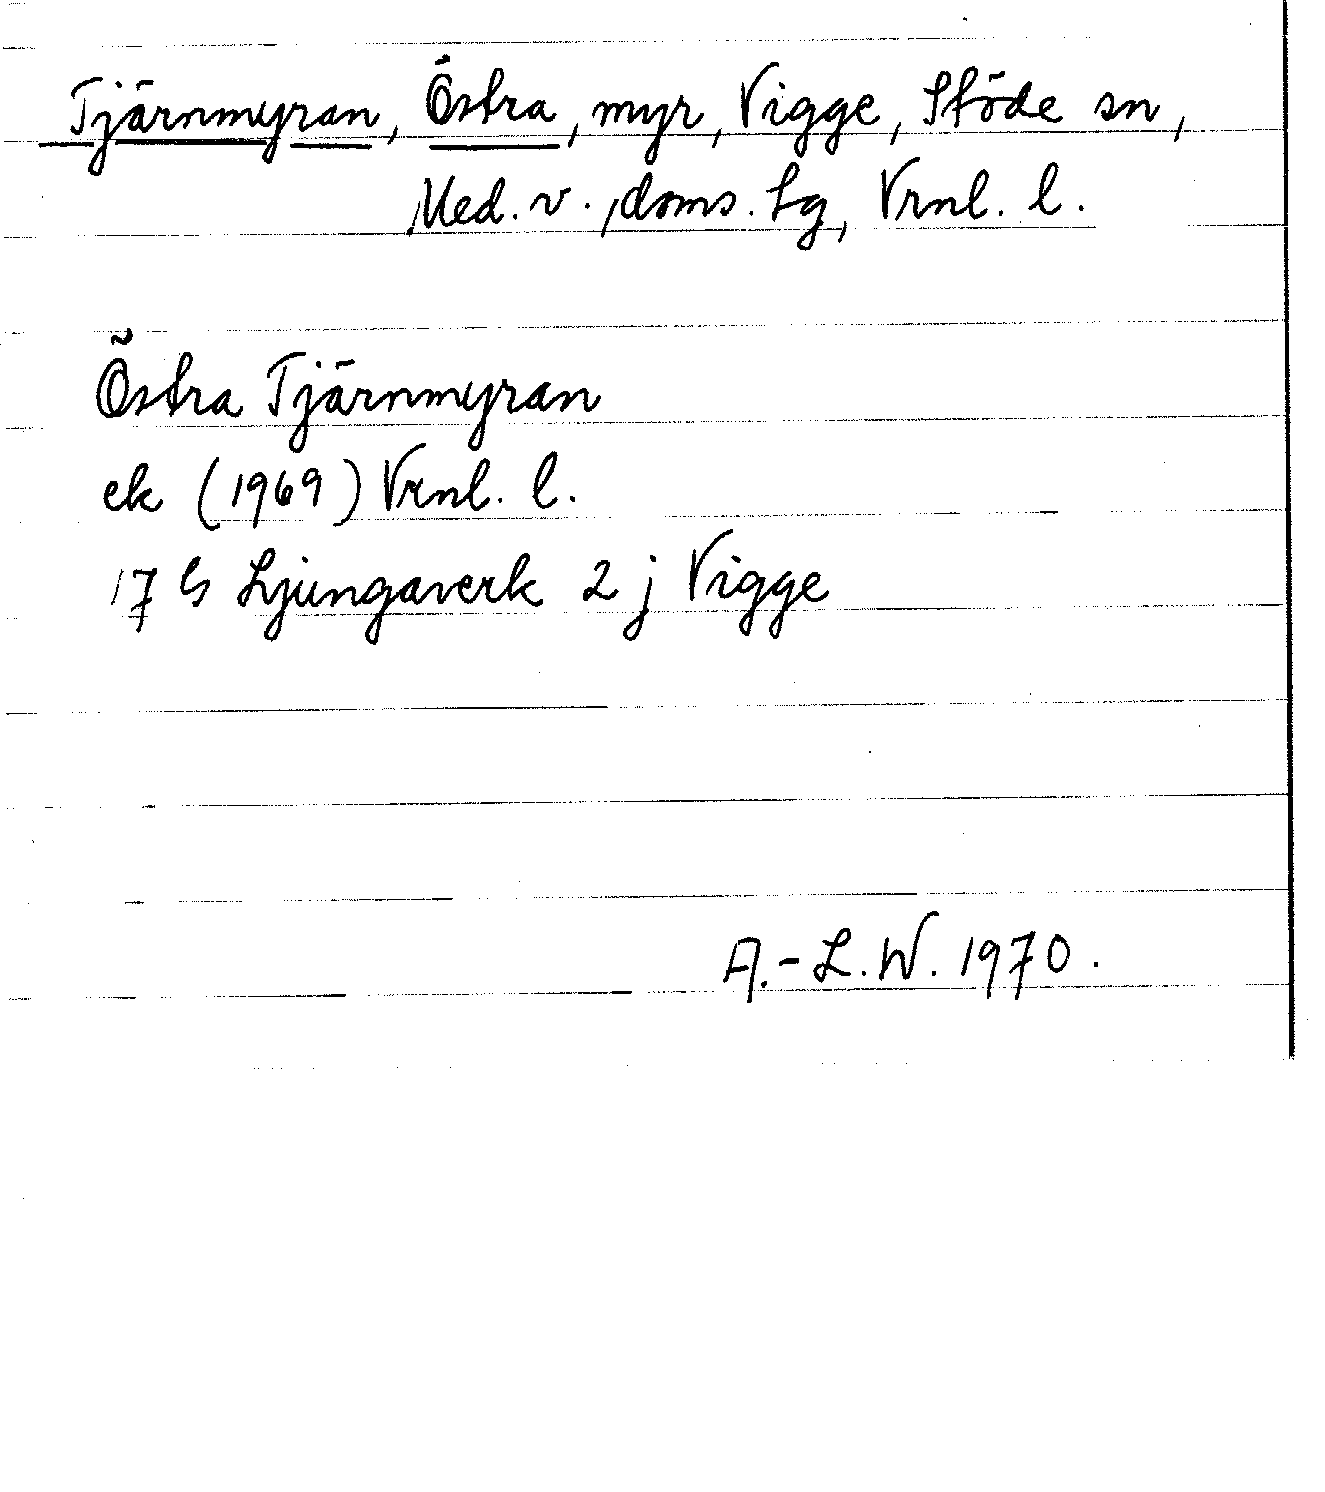 Tjärnmyran, Östra, myr, Vigge, Stöde sn,
Med. v., doms. lg, Vrnl. l.
Östra Tjärnmyran
ek (1969) Vrnl. l.
17 G Ljungaverk 2 j Vigge
A.-L.W. 1970.